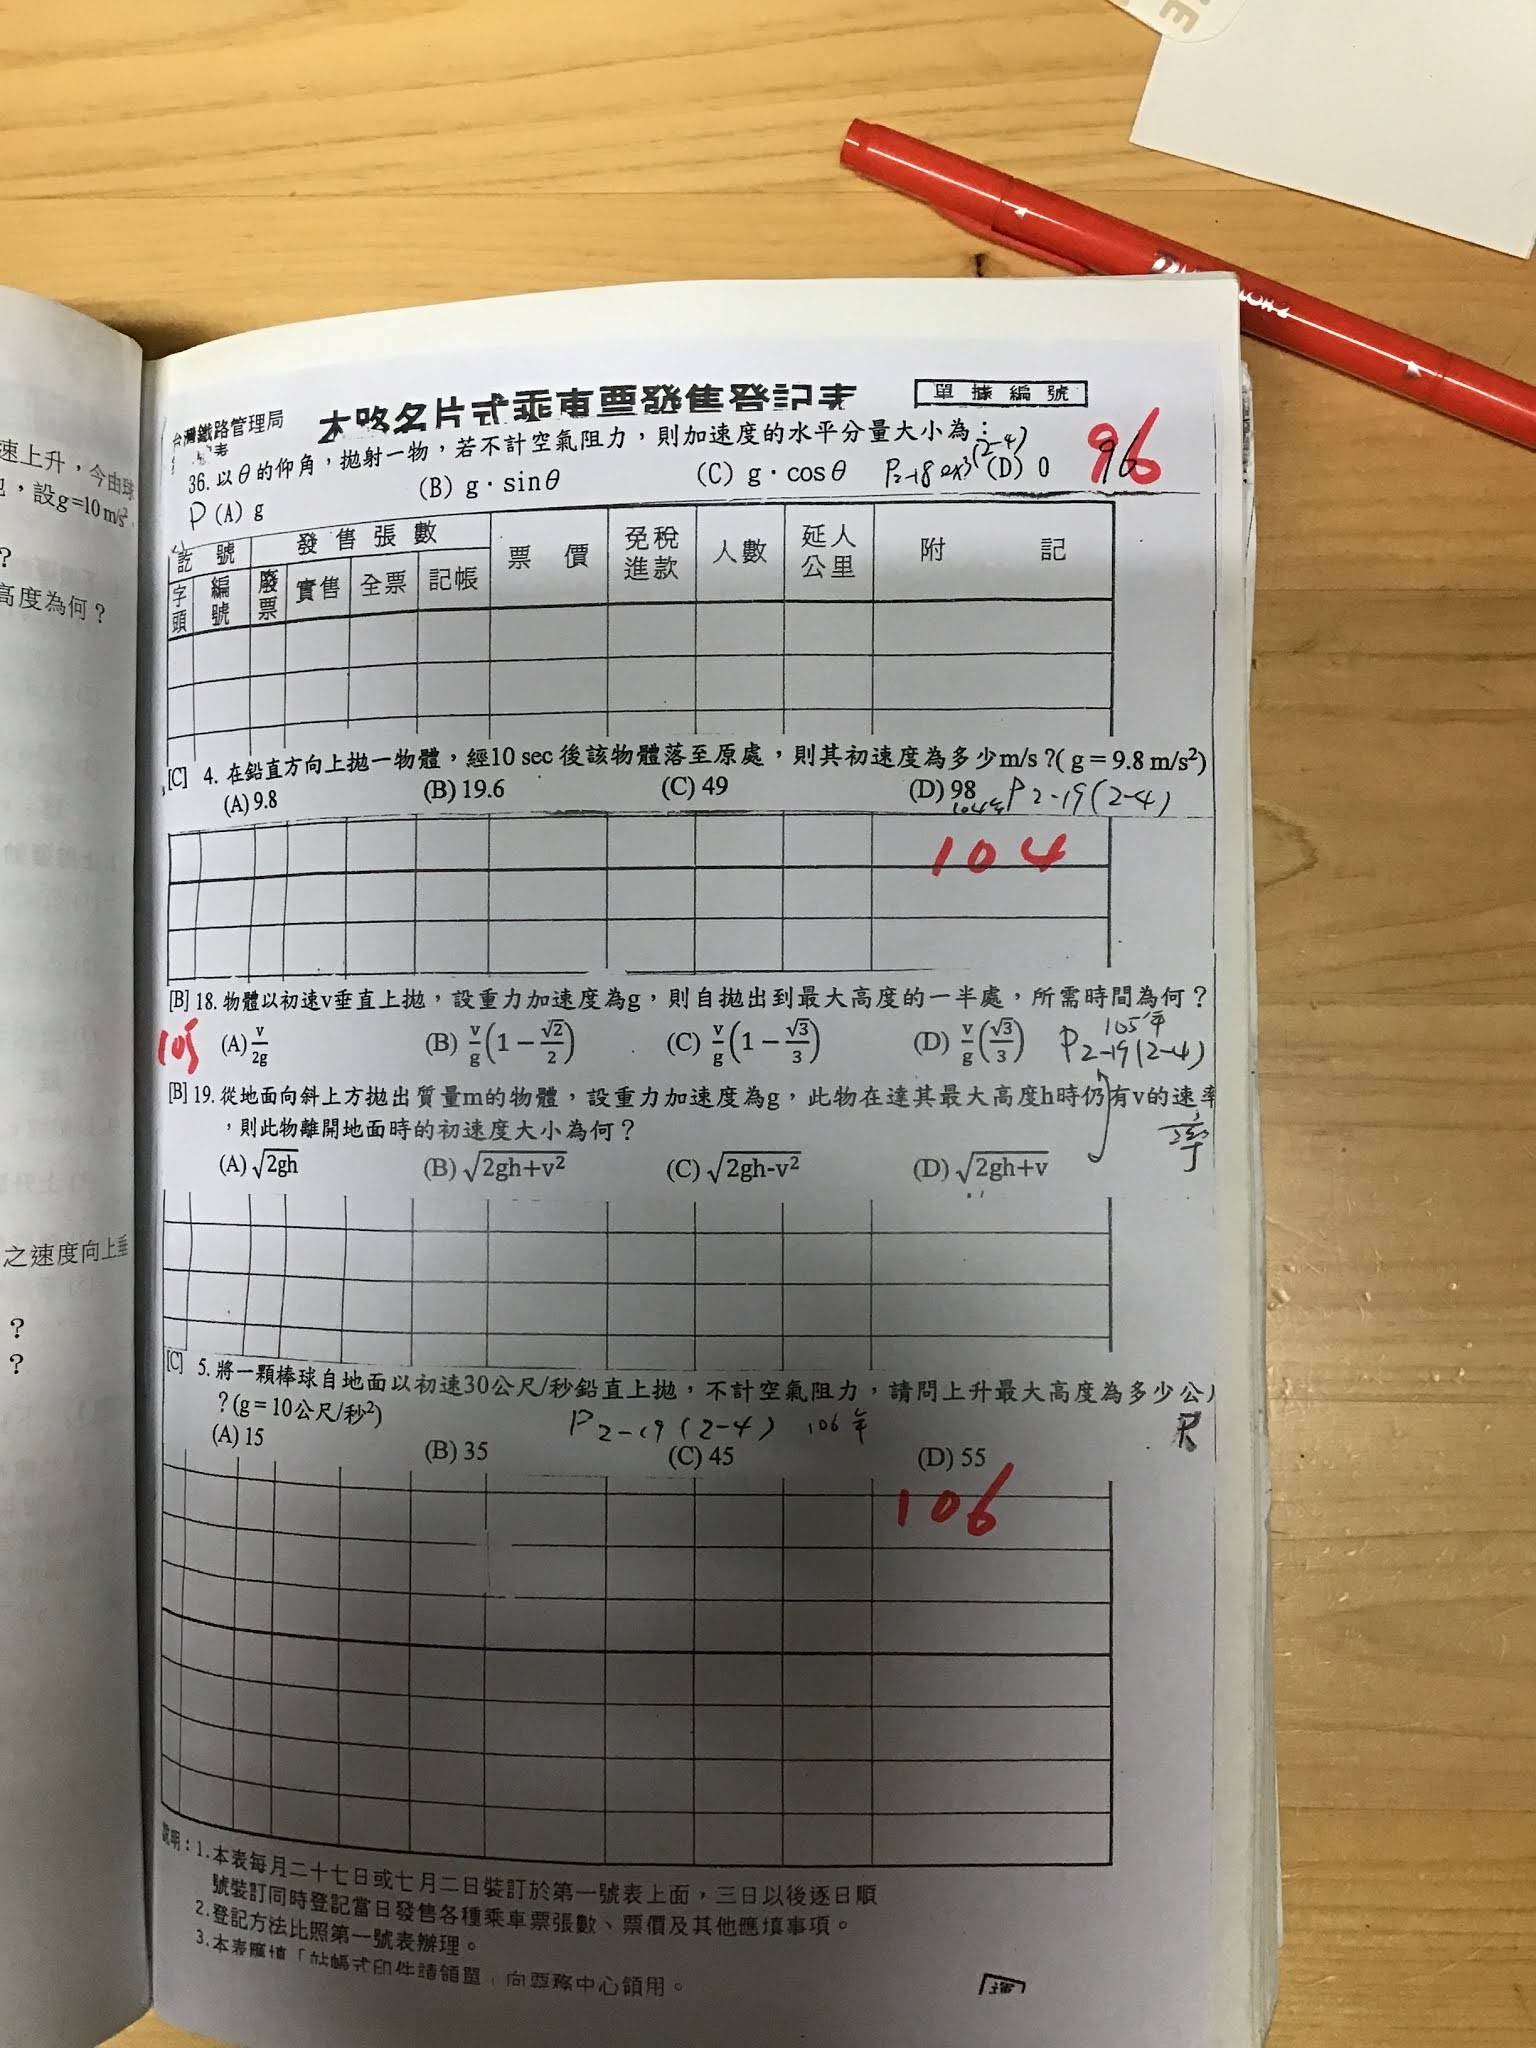 速上升，今由球
，設g=10 m/s²
?
高度為何？
之速度向上垂
?
?
台灣鐵路管理局
本路名片式乘車票發售登記表
單據編號
36. 以θ的仰角，拋射一物，若不計空氣阻力，則加速度的水平分量大小為：
D (A) g (B) g·sinθ (C) g·cosθ P2-18 ex3 (2-4) (D) 0 96
號 發售張數 票價 免稅進款 人數 延人公里 附記
字頭 編號 廢票 實售 全票 記帳
[C] 4. 在鉛直方向上拋一物體，經10 sec後該物體落至原處，則其初速度為多少m/s？( g = 9.8 m/s²)
(A) 9.8 (B) 19.6 (C) 49 (D) 98
104年 P2-19 (2-4)
104
[B] 18. 物體以初速v垂直上拋，設重力加速度為g，則自拋出到最大高度的一半處，所需時間為何？
105 (A) v/2g (B) v/g(1−√2/2) (C) v/g(1−√3/3) (D) v/g(√3/3) 105年 P2-19 (2-4)
[B] 19. 從地面向斜上方拋出質量m的物體，設重力加速度為g，此物在達其最大高度h時仍有v的速率
，則此物離開地面時的初速度大小為何？ 率
(A) √2gh (B) √2gh+v² (C) √2gh-v² (D) √2gh+v
[C] 5. 將一顆棒球自地面以初速30公尺/秒鉛直上拋，不計空氣阻力，請問上升最大高度為多少公尺
？(g = 10公尺/秒²) P2-19 (2-4) 106年
(A) 15 (B) 35 (C) 45 (D) 55
106
說明：1.本表每月二十七日或七月二日裝訂於第一號表上面，三日以後逐日順
號裝訂同時登記當日發售各種乘車票張數、票價及其他應填事項。
2.登記方法比照第一號表辦理。
3.本表應填「站帳式印件請領單」向票務中心領用。
運